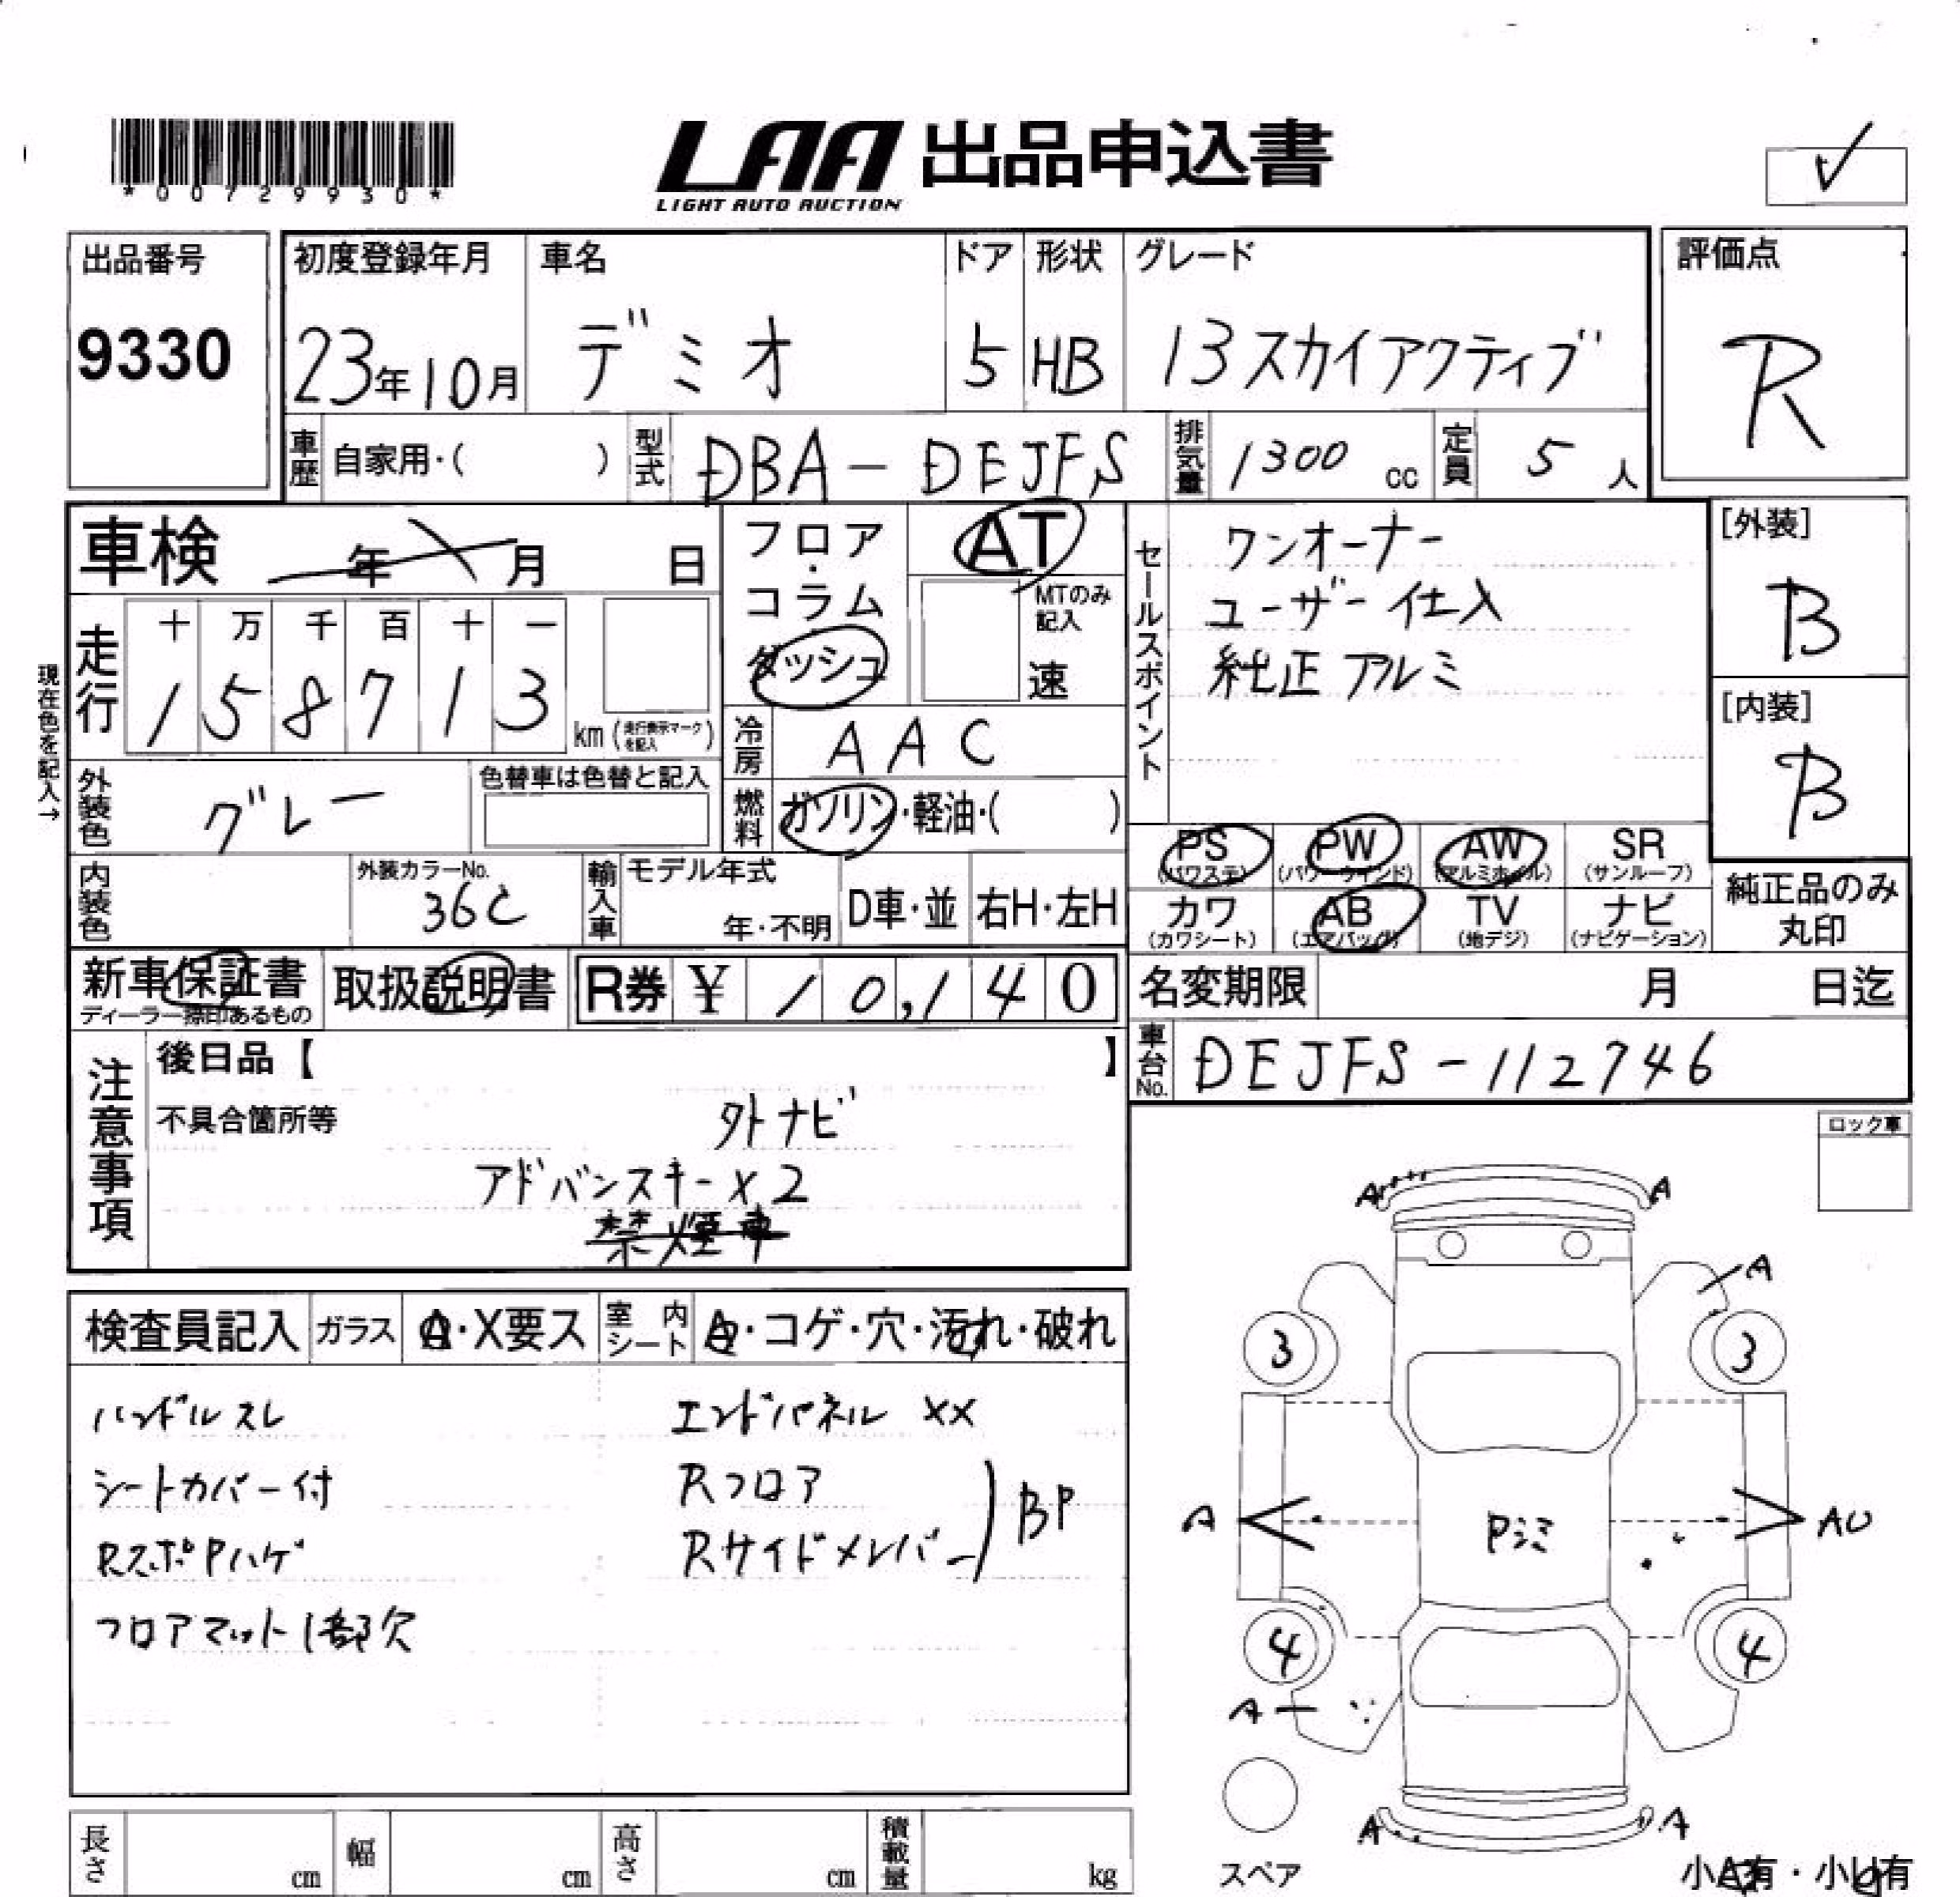 *00729930*
LAA 出品申込書
LIGHT AUTO AUCTION
出品番号
9330
初度登録年月
23年10月
車名
デミオ
ドア
5
形状
HB
グレード
13スカイアクティブ
評価点
R
車歴 自家用・( )
型式 DBA-DEJFS
排気量 1300 cc
定員 5 人
車検 年 月 日
走行
十 万 千 百 十 一
1 5 8 7 1 3 km (走行表示マークを記入)
現在色を記入→
フロア・コラム・ダッシュ
AT
MTのみ記入
速
セールスポイント
ワンオーナー
ユーザー仕入
純正アルミ
[外装]
B
[内装]
B
冷房 AAC
外装色 グレー
色替車は色替と記入
燃料 ガソリン・軽油・( )
内装色
外装カラーNo.
36C
輸入車
モデル年式
年・不明
D車・並
右H・左H
PS (パワステ)
PW (パワーウインド)
AW (アルミホイル)
SR (サンルーフ)
カワ (カワシート)
AB (エアバッグ)
TV (地デジ)
ナビ (ナビゲーション)
純正品のみ
丸印
新車保証書
ディーラー捺印あるもの
取扱説明書
R券 ¥ 10,140
名変期限 月 日迄
車台No. DEJFS-112746
注意事項
後日品【 】
不具合箇所等
外ナビ
アドバンスキーX2
禁煙車
ロック車
検査員記入
ガラス A・X要ス
室内シート
・コゲ・穴・汚れ・破れ
ハンドルスレ
シートカバー付
RスポPハゲ
フロアマット1部欠
エンドパネル XX
Rフロア
Rサイドメンバー
BP
A
A
A
3
3
A
Pシミ
AU
4
4
A
A
A
スペア
小A有・小U有
長さ cm
幅 cm
高さ cm
積載量 kg